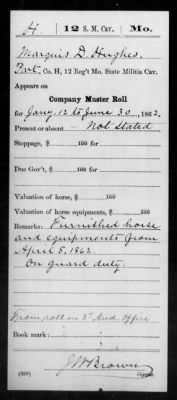 H. 12 S. M. Cav. Mo.
Marquis D. Hughes,
Pvt., Co. H, 12 Reg't Mo. State Militia Cav.
Appears on
Company Muster Roll
for Jany. 12 to June 30, 1862.
Present or absent Not Stated
Stoppage, $ 100 for
Due Gov't, $ 100 for
Valuation of horse, $ 100
Valuation of horse equipments, $ 100
Remarks: Furnished horse
and equipments from
April 5, 1862.
On guard duty.
From roll in 3d Aud. Office
Book mark:
J W Brown
(358) Copyist.